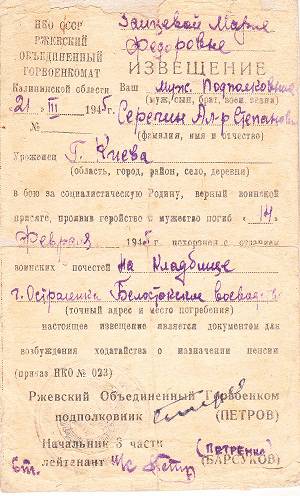 НКО СССР
РЖЕВСКИЙ
ОБЪЕДИНЕННЫЙ
ГОРВОЕНКОМАТ
Калининской области
21 III 1945.
№
Зайцевой Марие
Федоровне
ИЗВЕЩЕНИЕ
Ваш муж. Подполковник
(муж, сын, брат, воен. звание)
Серегин Ал-р Степанович
(фамилия, имя и отчество)
Уроженец Г. Киева
(область, город, район, село, деревни)
в бою за социалистическую Родину, верный воинской
присяге, проявив геройство и мужество погиб „14
Февраля 1945 г похоронен с отданием
воинских почестей на кладбище
г. Остроленка Белостокское воеводств.
(точный адрес и место погребения)
настоящее извещение является документом для
возбуждения ходатайства о назначении пенсии
(приказ НКО № 023)
Ржевский Объединенный Горвоенком
подполковник (ПЕТРОВ)
Начальник 3 части (ПЕТРЕНКО)
Ст. лейтенант и/с (БАРСУКОВ)